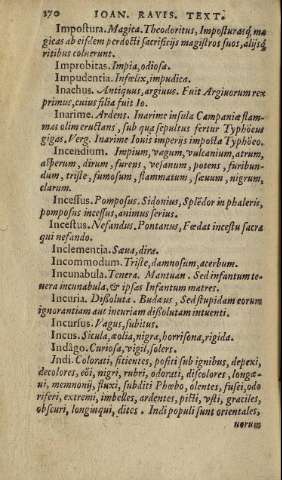 270 IOAN. RAVIS. TEXT.
Impostura. Magica. Theodoritus, Imposturasq́; ma
gicas ab eisdem perdocti sacrificijs magistros suos, alijsq́;
ritibus coluerunt.
Improbitas. Impia, odiosa.
Impudentia. Infœlix, impudica.
Inachus. Antiquus, argiuus. Fuit Argiuorum rex
primus, cuius filia fuit Io.
Inarime. Ardens. Inarime insula Campaniæ flam-
mas olim eructans, sub qua sepultus fertur Typhöeus
gigas. Verg. Inarime Iouis imperijs imposta Typhöeo.
Incendium. Impium, vagum, vulcanium, atrum,
asperum, dirum, furens, vesanum, potens, furibun-
dum, triste, fumosum, flammatum, sæuum, nigrum,
clarum.
Incessus. Pomposus. Sidonius, Splẽdor in phaleris,
pomposus incessus, animus serius.
Incestus. Nefandus. Pontanus, Fœdat incestu sacra
qui nefando.
Inclementia. Sæua, dira.
Incommodum. Triste, damnosum, acerbum.
Incunabula. Tenera. Mantuan. Sed infantum te-
nera incunabula, & ipsas Infantum matres.
Incuria. Dissoluta. Budæus, Sed stupidam eorum
ignorantiam aut incuriam dissolutam intuenti.
Incursus. Vagus, subitus.
Incus. Sicula, æolia, nigra, horrisona, rigida.
Indâgo. Curiosa, vigil, solers.
Indi. Colorati, sitientes, positi sub ignibus, depexi,
decolores, eöi, nigri, rubri, odorati, discolores, longæ-
ui, memnonij, fluxi, subditi Phœbo, olentes, fusci, odo
riferi, extremi, imbelles, ardentes, picti, vsti, graciles,
obscuri, longinqui, dites. Indi populi sunt orientales,
uorum